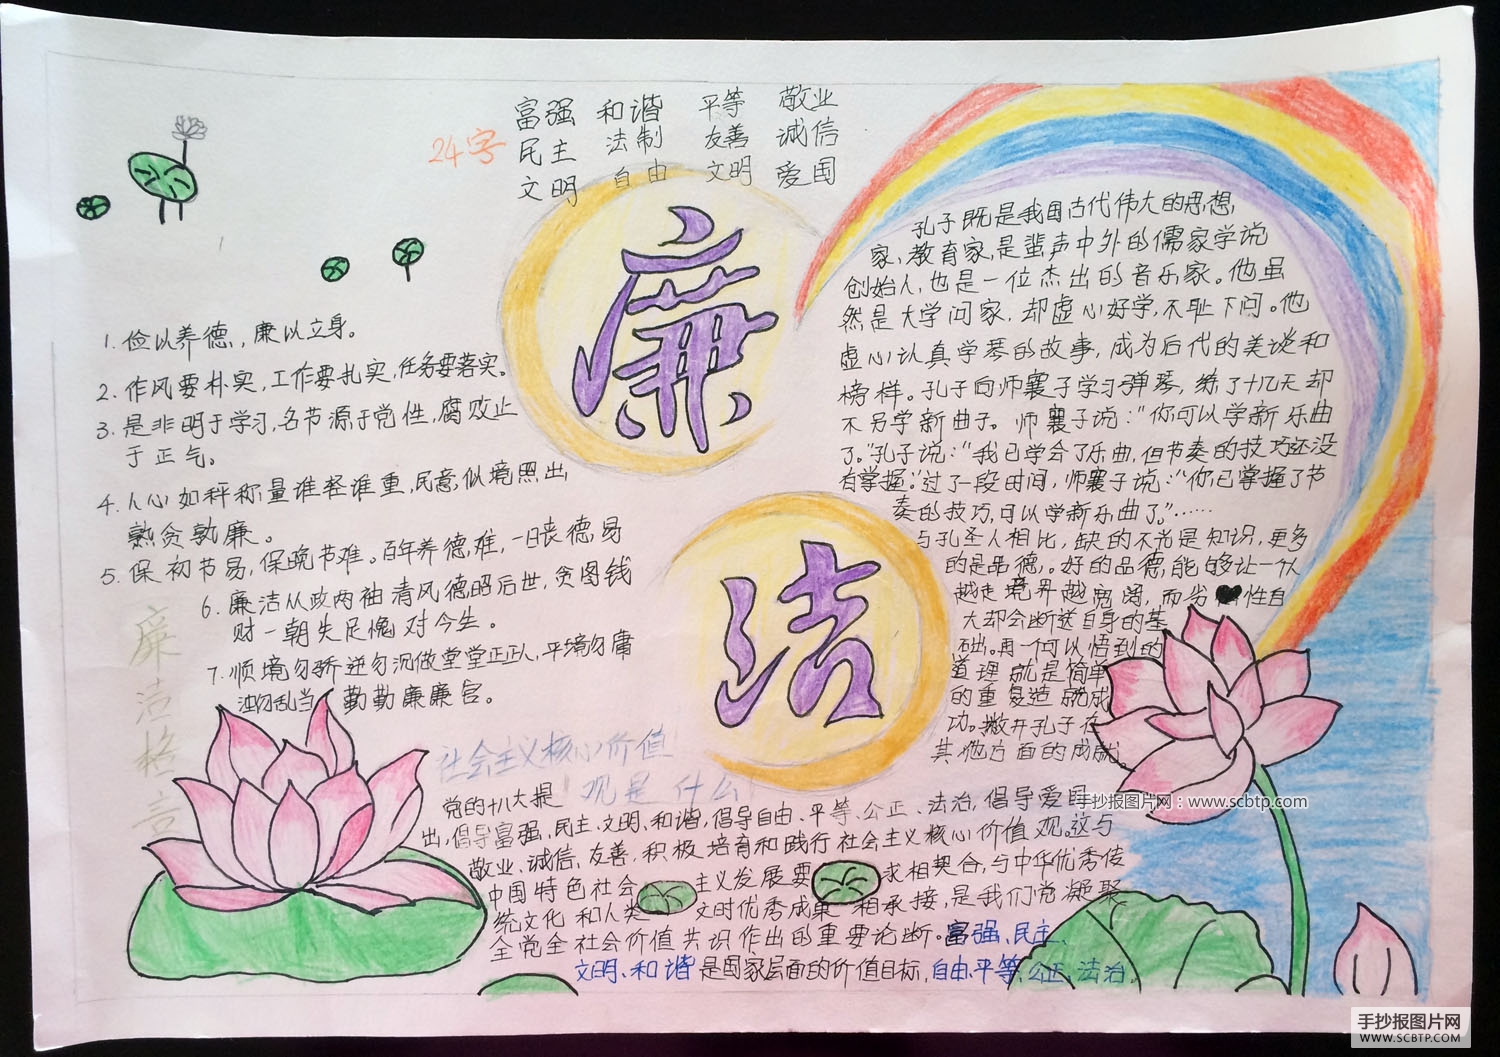 24字
富强 和谐 平等 敬业
民主 法制 友善 诚信
文明 自由 文明 爱国
廉
洁
1. 俭以养德，廉以立身。
2. 作风要朴实，工作要扎实，任务要落实。
3. 是非明于学习，名节源于党性，腐败止
于正气。
4. 人心如秤称量谁轻谁重，民意似境照出
熟贪孰廉。
5. 保初节易，保晚节难。百年养德难，一日丧德易
6. 廉洁从政两袖清风德昭后世，贪图钱
财一朝失足愧对今生。
7. 顺境勿骄逆勿沉做堂堂正正人，平境勿庸
勿乱当勤勤廉廉官。
廉洁格言
孔子既是我国古代伟大的思想
家，教育家，是蜚声中外的儒家学说
创始人，也是一位杰出的音乐家。他虽
然是大学问家，却虚心好学，不耻下问。他
虚心认真学琴的故事，成为后代的美谈和
榜样。孔子向师襄子学习弹琴，练了十几天却
不另学新曲子。师襄子说："你可以学新乐曲
了。"孔子说："我已学会了乐曲，但节奏的技巧还没
有掌握。"过了一段时间，师襄子说："你已掌握了节
奏的技巧，可以学新乐曲了。"……
与孔圣人相比，缺的不光是知识，更多
的是品德，。好的品德，能够让一个人
越走境界越宽阔，而劣性自
大却会断送自身的基
础。再一何可以悟到的
道理就是简单
的重复造就成
功。撇开孔子在
其他方面的成就。
社会主义核心价值
观是什么
党的十八大提
出，倡导富强、民主、文明、和谐，倡导自由、平等、公正、法治，倡导爱国、
敬业、诚信、友善，积极培育和践行社会主义核心价值观。这与
中国特色社会主义发展要求相契合，与中华优秀传
统文化和人类文时优秀成果相承接，是我们党凝聚
全党全社会价值共识作出的重要论断。富强、民主、
文明、和谐是国家层面的价值目标，自由、平等、公正、法治，
手抄报图片网：www.scbtp.com
手抄报图片网
WWW.SCBTP.COM